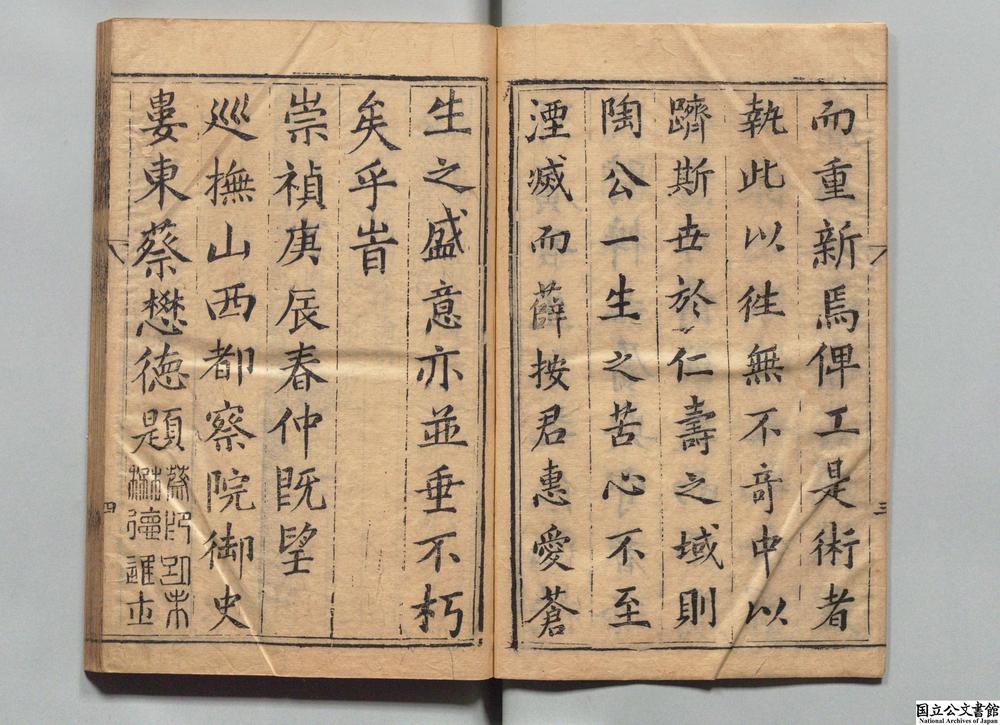 而重新焉俾工是術者
執此以往無不奇中以
躋斯世於仁壽之域則
陶公一生之苦心不至
湮滅而薛按君惠愛蒼
三
生之盛意亦並垂不朽
矣乎旹
崇禎庚辰春仲既望
巡撫山西都察院御史
婁東蔡懋德題
四
国立公文書館
National Archives of Japan